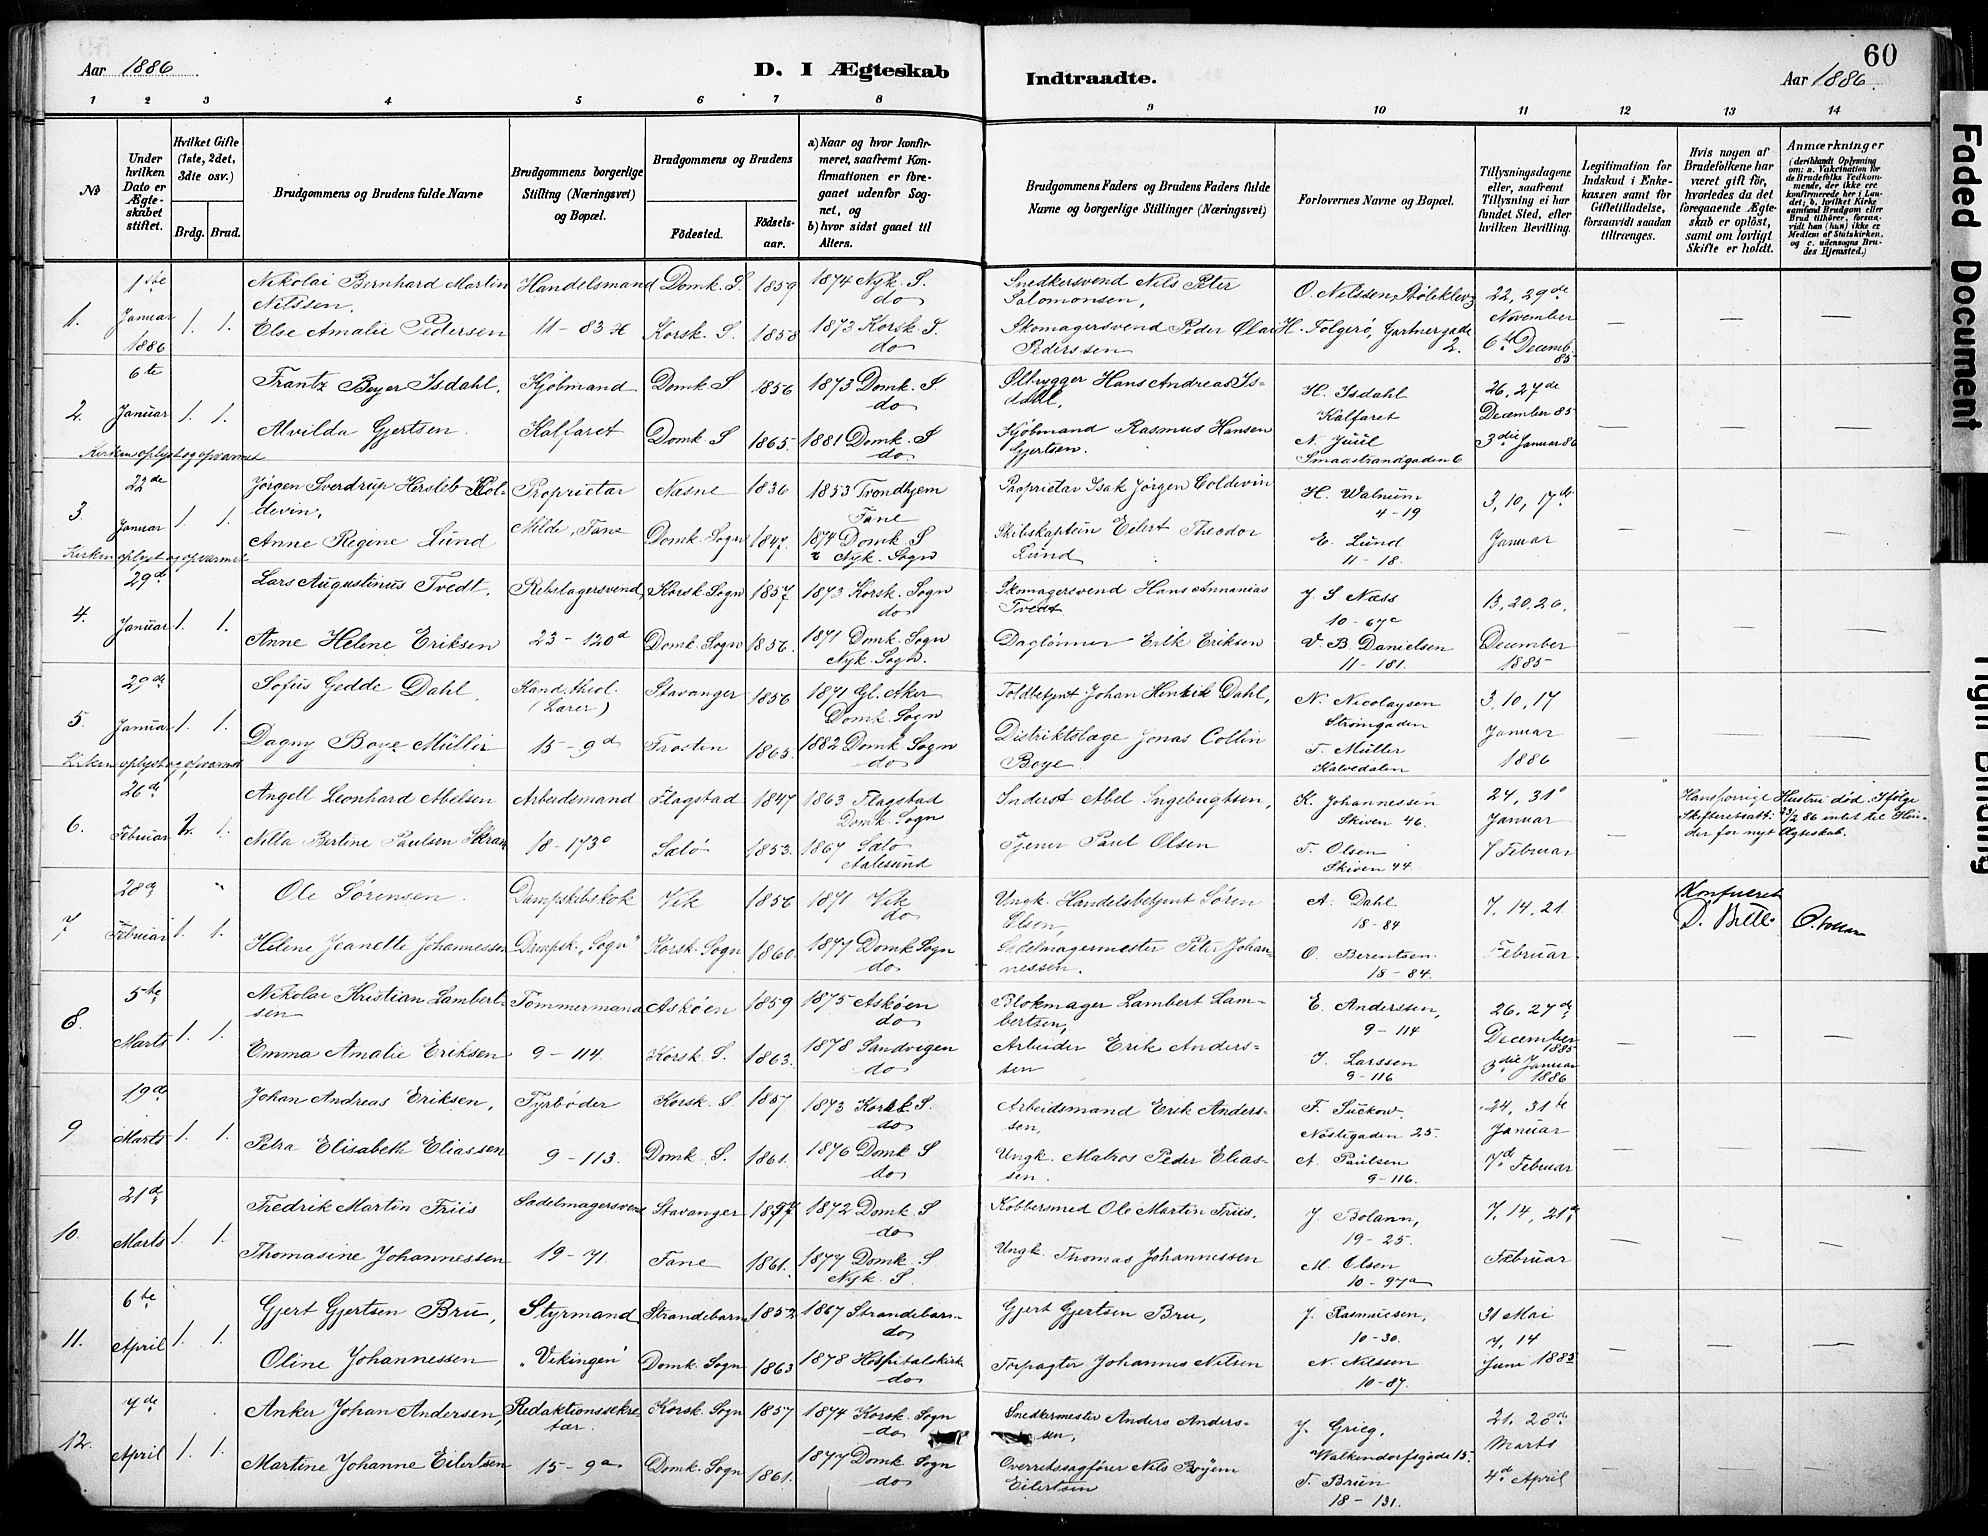 60
Aar 1886
D. I Ægteskab
Indtraadte.
Aar 1886.
1 2 3 4 5 6 7 8 9 10 11 12 13 14
No
Under hvilken Dato er Ægteskabet stiftet.
Hvilket Gifte (1ste, 2det, 3die osv.)
Brdg. Brud.
Brudgommens og Brudens fulde Navne
Brudgommens borgerlige Stilling (Næringsvei) og Bopæl.
Brudgommens og Brudens
Fødested.
Fødselsaar.
a) Naar og hvor konfirmeret, saafremt Konfirmationen er foregaaet udenfor Sognet, og
b) hvor sidst gaaet til Alters.
Brudgommens Faders og Brudens Faders fulde Navne og borgerlige Stillinger (Næringsvei)
Forlovernes Navne og Bopæl.
Tillysningsdagene eller, saafremt Tillysning ei har fundet Sted, efter hvilken Bevilling.
Legitimation for Indskud i Enkekassen samt for Giftetilladelse, forsaavidt saadan tiltrænges.
Hvis nogen af Brudefolkene har været gift før, hvorledes da det foregaaende Ægteskab er opløst, samt om lovligt Skifte er holdt.
Anmærkninger
(deriblandt Oplysning om: a. Vakcination for de Brudefolks Vedkommende, der ikke ere konfirmerede her i Landet; b. hvilket Kirkesamfund Brudgom eller Brud tilhører, forsaavidt han (hun) ikke er Medlem af Statskirken, og c. udensogns Brudes Hjemsted.)
1. 1ste Januar 1886 1. 1.
Nikolai Bernhard Martin Nilssen. Handelsmand Domk. S. 1859 1874 Nyk. S. do Snedkersvend Nils Peter Salomonsen, O. Nilssen, 22, 29de November
Elie Amalie Pedersen 11-83 Korsk. S. 1858 1873 Korsk. S. do Skomagersvend Peder Olai Pederssen H. Folgerö, Gartnergade 2. 6te Decemb. 85
2. 6te Januar 1. 1.
Frantz Beyer Isdahl, Kjöbmand Domk S. 1856 1873 Domk. S do Ølbrygger Hans Andreas Isdahl, H. Isdahl Kalfaret 26, 27de December 85
Alvilda Gjertsen. Kalfaret Domk S 1865. 1881 Domk. S do. Kjöbmand Rasmus Hansen Gjertsen. A. Juul Smaastrandgaden 6 3die Januar 86
Kirken oplyst og opvarmet
3. 22de Januar 1. 1.
Jörgen Sverdrup Hersleb Coldevin, Proprietær Næsne 1836 1853 Trondhjem Fane Proprietær Isak Jörgen Coldevin H. Walnum 4-19 3, 10, 17de
Anne Regine Lund Milde, Fane Domk. Sogn 1847. 1874 Domk. S Nyk. Sogn Skibskaptein Eilert Theodor Lund E. Lund 11-18. Januar
Kirken oplyst og opvarmet
4. 29de Januar 1. 1.
Lars Augustinus Tvedt. Rebslagersvend, Korsk. Sogn 1857 1873 Korsk. Sogn do Skomagersvend Hans Annanias Tvedt J. S Næss 10-67c 13, 20, 26,
Anne Helene Eriksen 23-120d Domk. Sogn 1856. 1871 Domk. Sogn Nyk. Sogn. Daglönner Erik Eriksen V. B. Danielsen 11-181. December 1885
5. 29de Januar 1. 1.
Sofus Gedde Dahl. Kand. theol. (Lærer) Stavanger 1856 1871 Gl. Aker Domk. Sogn Toldbetjnt Johan Henrik Dahl, N. Nicolaysen Strömgaden 3, 10, 17
Dagny Boye Müller 15-9d Frosten 1865. 1882 Domk. Sogn do Distriktslæge Jonas Collin Boye F. Müller Kalvedalen Januar 1886
Kirken oplyst og opvarmet
6. 26de Februar 2. 1.
Angell Leonhard Abelsen Arbeidsmand Flagstad 1847 1863 Flagstad Domk. Sogn Inderst Abel Ingebrigtsen, K. Johannessen Skiven 46. 24, 31 Januar Hans forrige Hustru död. Ifölge Skifteretsatt. 23/2 86 intet til Hinder for nyt Ægteskab.
Nilla Bertine Paulsen 18-173 Sælö 1853. 1867 Sælö Aalesund Tjener Paul Olsen T. Olsen Skiven 44. 7 Februar
7 28de Februar 1. 1.
Ole Sörensen. Dampskibskok Vik 1856 1871 Vik do Ungk. Handelsbetjnt Sören Olsen, A. Dahl 18-84 7, 14, 21 Konfereret
Helene Jeanette Johannessen Dampsk. "Sogn" Korsk. Sogn 1860. 1877 Domk Sogn do Sadelmagermester Peter Johannessen. O. Berentsen. 18-84. Februar
8. 5te Marts 1. 1.
Nikolai Kristian Lambertsen Tömmermand Asköen 1859 1875 Asköen do Blokmager Lambert Lambertsen, E. Anderssen, 9-114 26. 27de December 1885
Emma Amalie Eriksen 9-114. Korsk. S. 1863. 1878 Sandvigen do Arbeider Erik Anderssen J. Larssen 9-116 3die Januar 1886
9 19de Marts 1. 1.
Johan Andreas Eriksen, Fyrböder Korsk. S. 1857 1873 Korsk S. do Arbeidsmand Erik Anderssen, F. Suckow. Nöstegaden 25. 24, 31te Januar
Petra Elisabeth Eliassen 9-113. Domk. S. 1861. 1876 Domk. S do Ungk. Matros Peder Eliassen. A. Paulsen 9-116. 7de Februar
10. 21de Marts 1. 1.
Fredrik Martin Friis Sadelmagersvend Stavanger 1857 1872 Domk. S do Kobbersmed Ole Martin Friis. J. Bolann, 19-25. 7, 14, 21de
Thomasine Johannessen 19-71. Fane 1861. 1877 Domk. S. Nyk. S. Ungk. Thomas Johannessen M. Olsen 10-97a Februar
11. 6te April 1. 1.
Gjert Gjertsen Bru, Styrmand Strandebarm 1852 1867 Strandebarm do Gjert Gjertsen Bru, J. Rasmussen, 10-30. 31 Mai
Oline Johannessen "Vikingen" Domk. Sogn 1863 1878 Hospitalskirk do Forpagter Johannes Nilsen N. Nilssen 10-87. 7, 14 Juni 1885
12. 7de April 1. 1.
Anker Johan Andersen, Redaktionssekretær. Korsk. Sogn 1857 1874 Korsk. Sogn do Snedkermester Anders Anderssen, J. Grieg, Walkendorfsgade 15. 21. 28de Marts
Martine Johanne Eilertsen 15-9a Domk. Sogn 1861. 1877 Domk Sogn do Overretssagförer Nils Böyem Eilertsen F. Brun 18-131. 4de April
Faded Document
Tight Binding